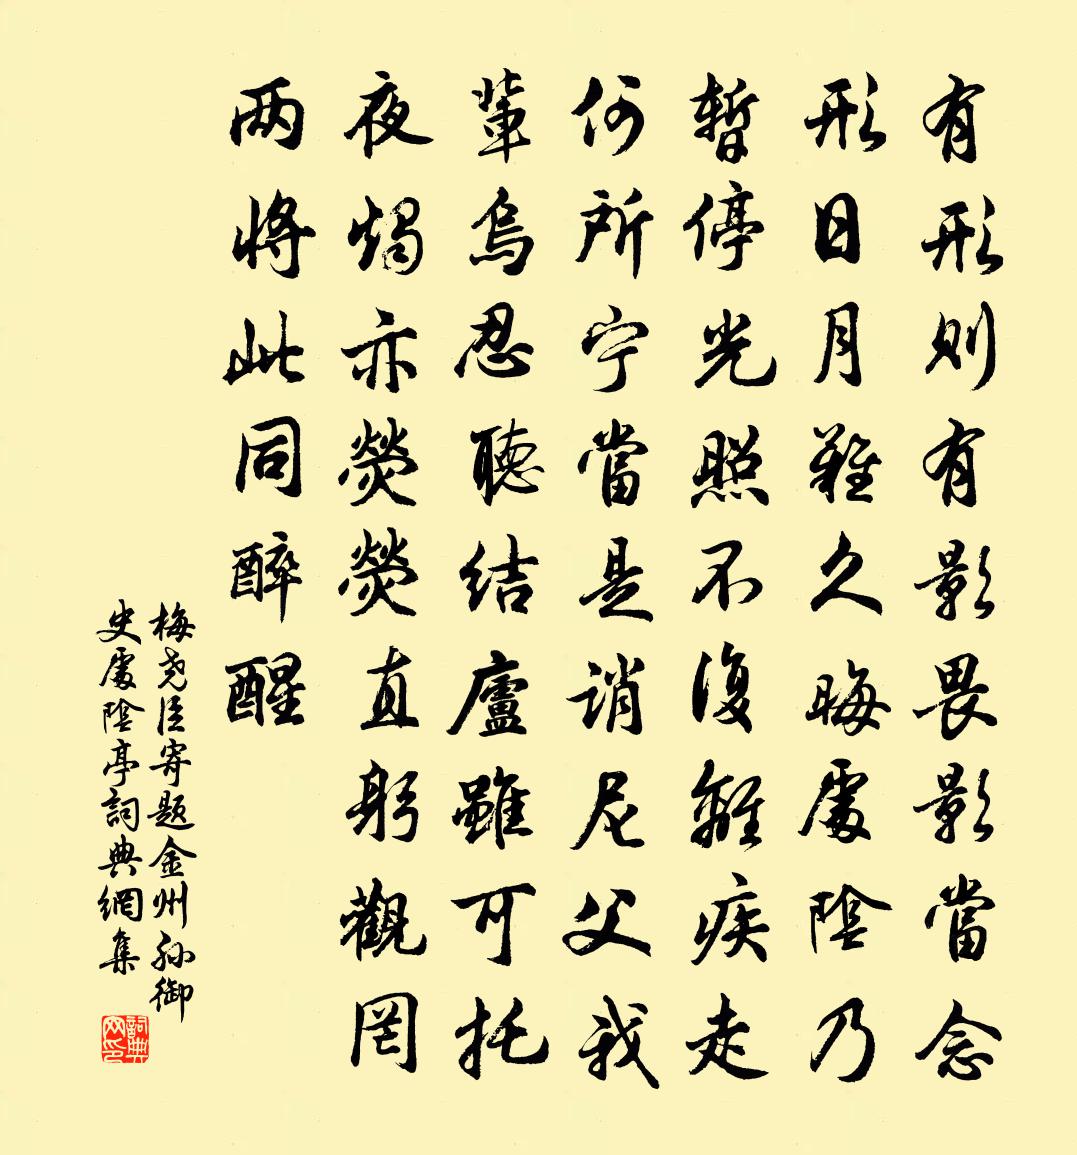 有形则有影畏影當念
形日月難久晦處陰乃
暫停光照不復離疾走
何所宁當是誚尼父我
輩烏忍聽结廬雖可托
夜燭亦熒熒直躬觀罔
两將此同醉醒
梅尧臣寄題金州孙御
史處陰亭詞典網集
詞典
网印